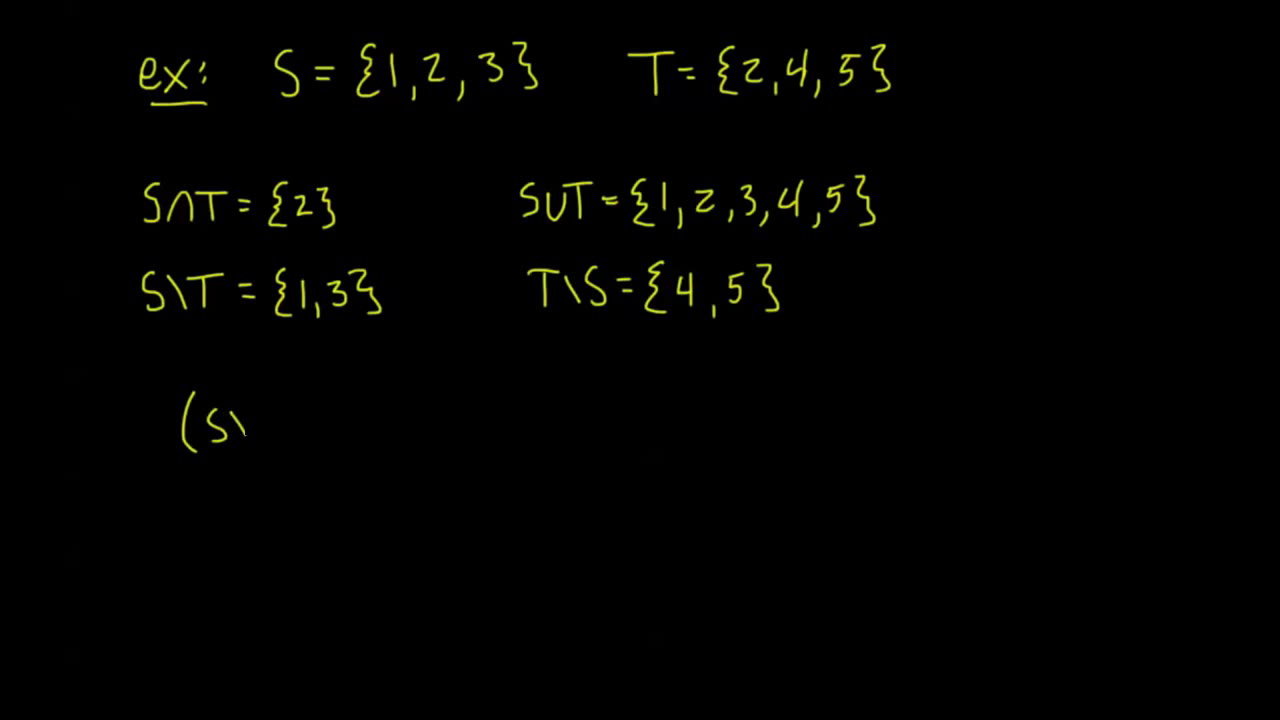 ex: S = {1,2,3} T = {2,4,5}
S∩T = {2} S∪T = {1,2,3,4,5}
S\T = {1,3} T\S = {4,5}
(S\